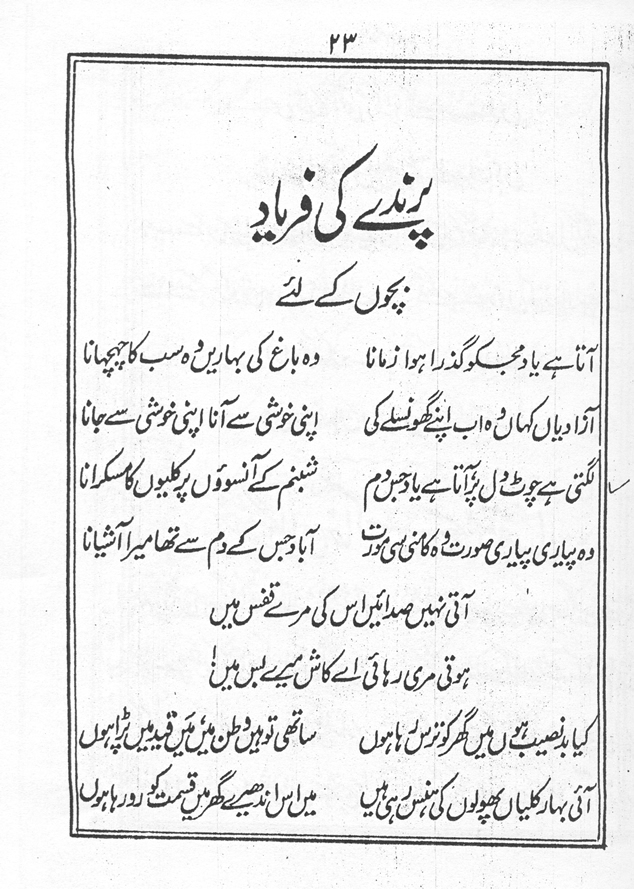 ۲۳
پرندے کی فریاد
بچوں کے لئے
آتا ہے یاد مجکو گذرا ہوا زمانا وہ باغ کی بہاریں وہ سب کا چہچہانا
آزادیاں کہاں وہ اب اپنے گھونسلے کی اپنی خوشی سے آنا اپنی خوشی سے جانا
لگتی ہے چوٹ دل پر آتا ہے یاد جس دم شبنم کے آنسوؤں پر کلیوں کا مسکرانا
وہ پیاری پیاری صورت وہ کامنی سی مورت آباد جس کے دم سے تھا میرا آشیانا
آتی نہیں صدائیں اس کی مرے قفس میں
ہوتی مری رہائی اے کاش میرے بس میں!
کیا بد نصیب ہوں میں گھر کو ترس رہا ہوں ساتھی تو ہیں وطن میں، میں قید میں پڑا ہوں
آئی بہار کلیاں پھولوں کی ہنس رہی ہیں میں اس اندھیرے گھر میں قسمت کو رو رہا ہوں